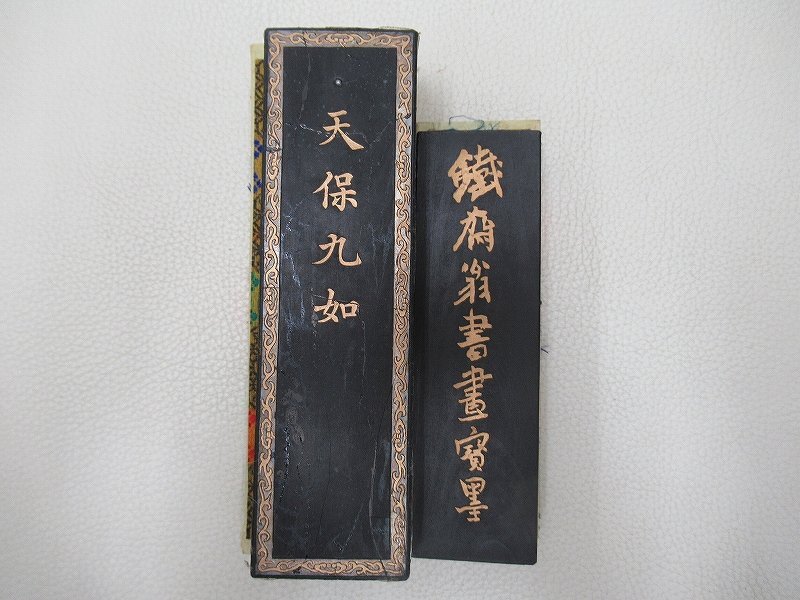 天保九如
鐵斎翁書畫寳墨